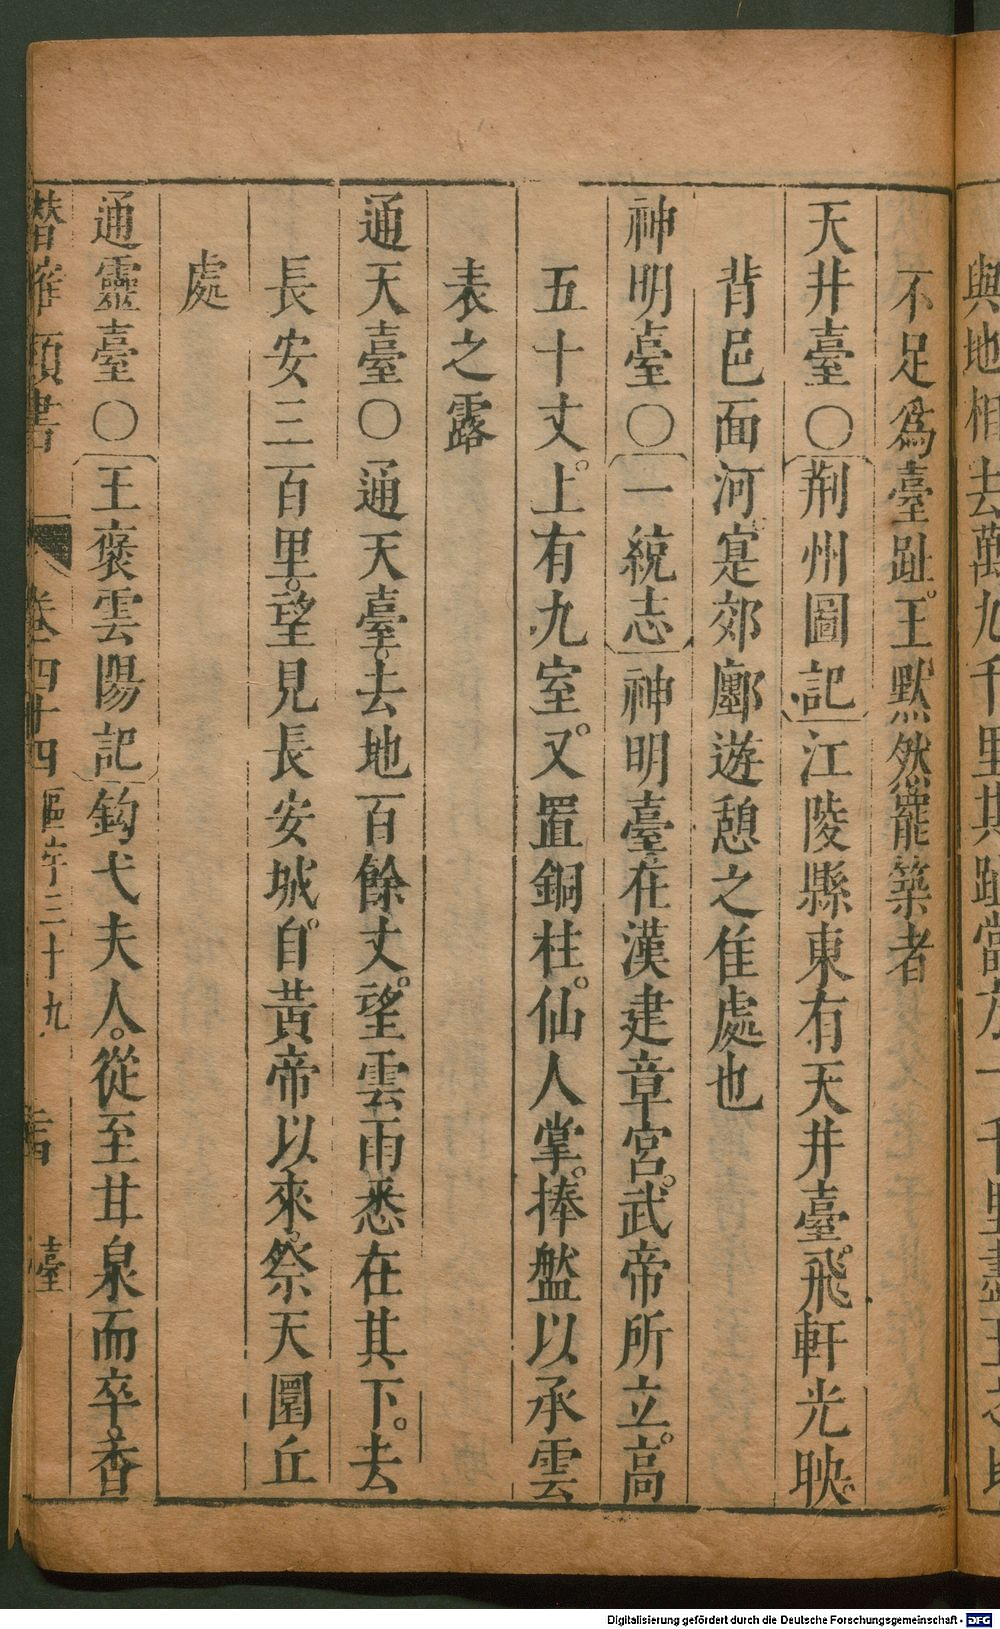 與地相去萬九千里其趾當方一千里盡王之地
不足爲臺趾王默然罷築者
天井臺〇荆州圖記江陵縣東有天井臺飛軒光映
背邑面河寔郊鄽遊憩之佳處也
神明臺〇一統志神明臺在漢建章宮武帝所立高
五十丈上有九室又置銅柱仙人掌捧盤以承雲
表之露
通天臺〇通天臺去地百餘丈望雲雨悉在其下去
長安三百里望見長安城自黃帝以來祭天圜丘
處
通靈臺〇王褒雲陽記鈎弋夫人從至甘泉而卒香
潜確類書 卷四十四 區宇三十九 臺
Digitalisierung gefördert durch die Deutsche Forschungsgemeinschaft - DFG